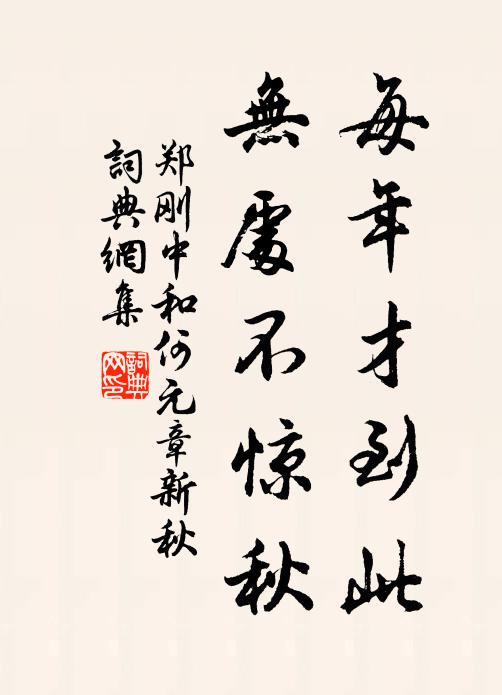 每年才到此
無處不惊秋
郑刚中和何元章新秋
詞典網集
詞典
网印